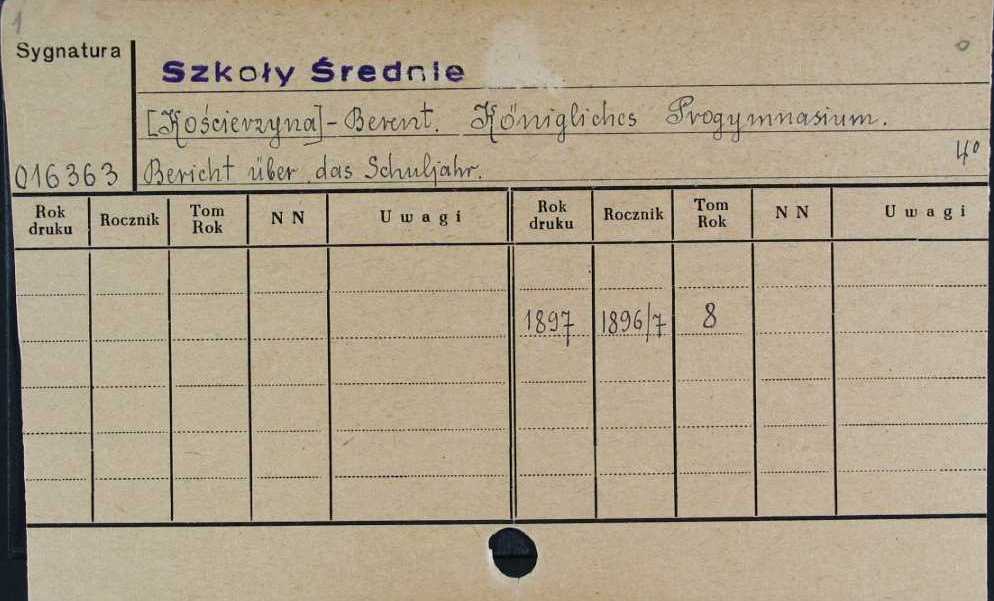 1
Sygnatura
Szkoły Średnie
[Kościerzyna]-Berent. Königliches Progymnasium.
4°
016363
Bericht über das Schuljahr.
Rok druku Rocznik Tom Rok N N Uwagi Rok druku Rocznik Tom Rok N N Uwagi
1897 1896/7 8